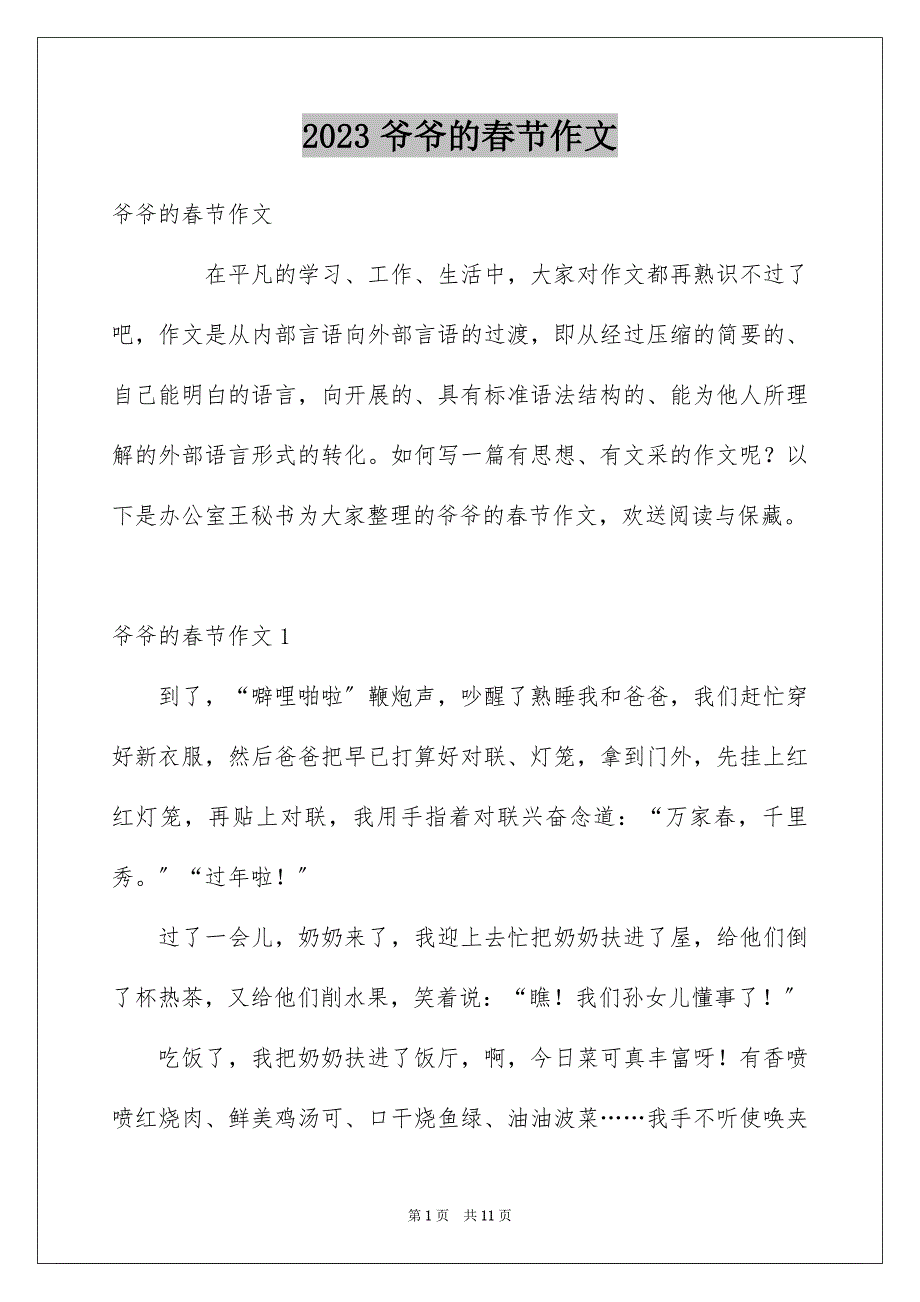 2023爷爷的春节作文
爷爷的春节作文
在平凡的学习、工作、生活中，大家对作文都再熟识不过了
吧，作文是从内部言语向外部言语的过渡，即从经过压缩的简要的、
自己能明白的语言，向开展的、具有标准语法结构的、能为他人所理
解的外部语言形式的转化。如何写一篇有思想、有文采的作文呢？以
下是办公室王秘书为大家整理的爷爷的春节作文，欢送阅读与保藏。
爷爷的春节作文 1
到了，“噼哩啪啦〞鞭炮声，吵醒了熟睡我和爸爸，我们赶忙穿
好新衣服，然后爸爸把早已打算好对联、灯笼，拿到门外，先挂上红
红灯笼，再贴上对联，我用手指着对联兴奋念道：“万家春，千里
秀。〞“过年啦！〞
过了一会儿，奶奶来了，我迎上去忙把奶奶扶进了屋，给他们倒
了杯热茶，又给他们削水果，笑着说：“瞧！我们孙女儿懂事了！〞
吃饭了，我把奶奶扶进了饭厅，啊，今日菜可真丰富呀！有香喷
喷红烧肉、鲜美鸡汤可、口干烧鱼绿、油油波菜……我手不听使唤夹
第 1 页 共 11 页